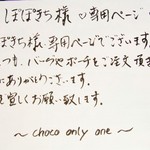 ぽぽきち様♡専用ページ
ぽきち様専用ページでございます
つも、パーツやボーをご注文頂き
にありがとうございます。
宜しくお願い致します。
～ choco only one ～